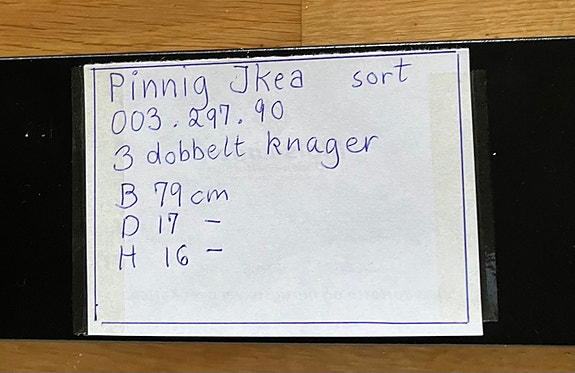 Pinnig Ikea sort
003.297.90
3 dobbelt knager
B 79 cm
D 17 –
H 16 –